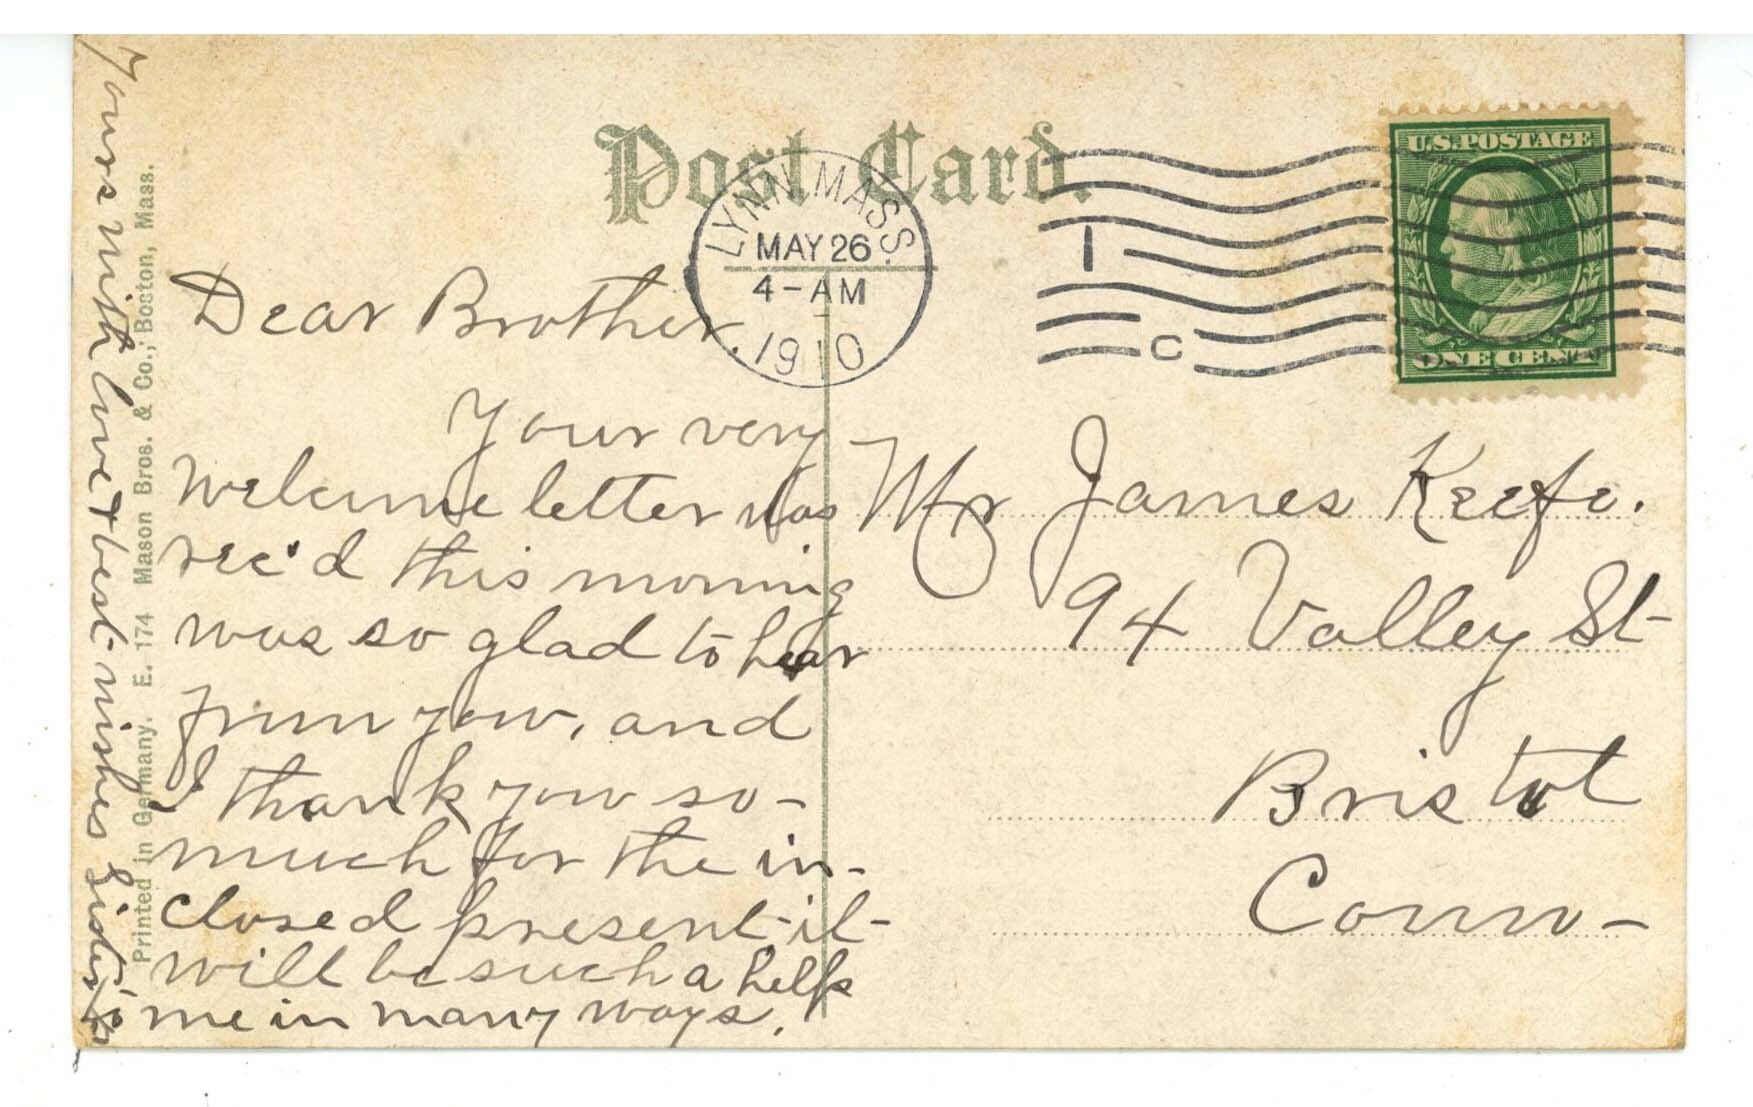 Post Card.
LYNN MASS.
MAY 26
4-AM
1910
1
C
U.S. POSTAGE
ONE CENT
Dear Brother.
Your very
welcome letter was
rec'd this morning
was so glad to hear
from you, and
I thank you so-
much for the in-
closed present-it-
will be such a help
to me in many ways.
Yours with love & best-wishes Sister
Mr James Keefe.
94 Valley St-
Bristol
Conn-
Printed in Germany. E. 174 Mason Bros. & Co., Boston, Mass.